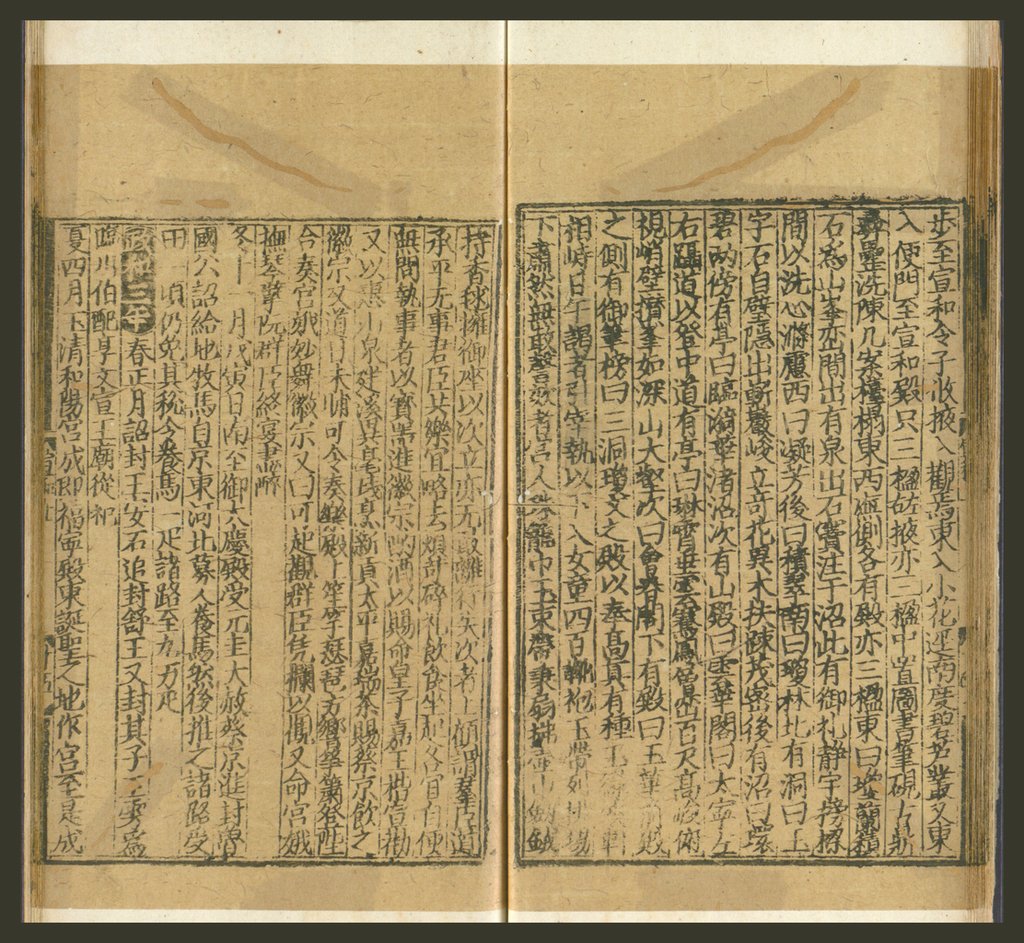 步至宣和令子城掖入觀焉東入小花逕南度碧芦叢又東
入便門至宣和殿只三楹左掖亦三楹中置圖書筆硯古鼎
彝罍洗陳几案檯榻東西廂側各有殿亦三楹東曰瓊蘭積
石爲山峯巒間出有泉出石竇注于沼此有御札静字榜樑
間以洗心滌慮西曰凝芳後曰積翠南曰瓊林北有洞曰玉
字石自壁隱出嶄巖峻立奇花異木扶疎茂密後有沼曰環
碧两傍有亭曰臨漪華渚沼次有山殿曰雲華閣曰太寧左
右躡道以登中道有亭曰琳霄垂雲騫鳳層百尺高峻俯
視峭壁攢峯如深山大壑次曰會春閣下有殿曰玉華前殿
之側有御筆榜曰三洞瓊文之殿以奉高真有種玉軒
相峙日午謁者引宰執以下入女童四百靴袍玉帶列排場
下肅然無敢謦欬者宮人珠籠巾玉束帶秉扇拂壺劍鉞
持香毬擁御座以次立亦无敢離行失次者上顧謂羣臣道
承平无事君臣共樂宜略去煩苛碎礼飲食坐起宜自便
無問執事者以寶器進徽宗酌酒以賜命皇子嘉王楷宣勸
又以惠山泉建溪異毫盞烹新貢太平嘉瑞茶賜蔡京飲之
徽宗又道日未晡可令奏樂殿上笙竽瑟琵方響箏簫登陛
合奏宮娥妙舞徽宗又曰可起觀群臣凭欄以觀又命宮娥
撫琴擘阮群臣終宴盡醉
冬十一月戊寅日南至御大慶殿受元圭大赦蔡京進封魯
國公詔給地牧馬自京東河北募人養馬然後推之諸路受
田一頃仍免其稅令養馬一疋諸路至九万疋
政和三年春正月詔封王安石追封舒王又封其子王雱爲
臨川伯配享文宣王廟從祀
夏四月玉清和陽宮成即福寧殿東誕聖之地作宮至是成